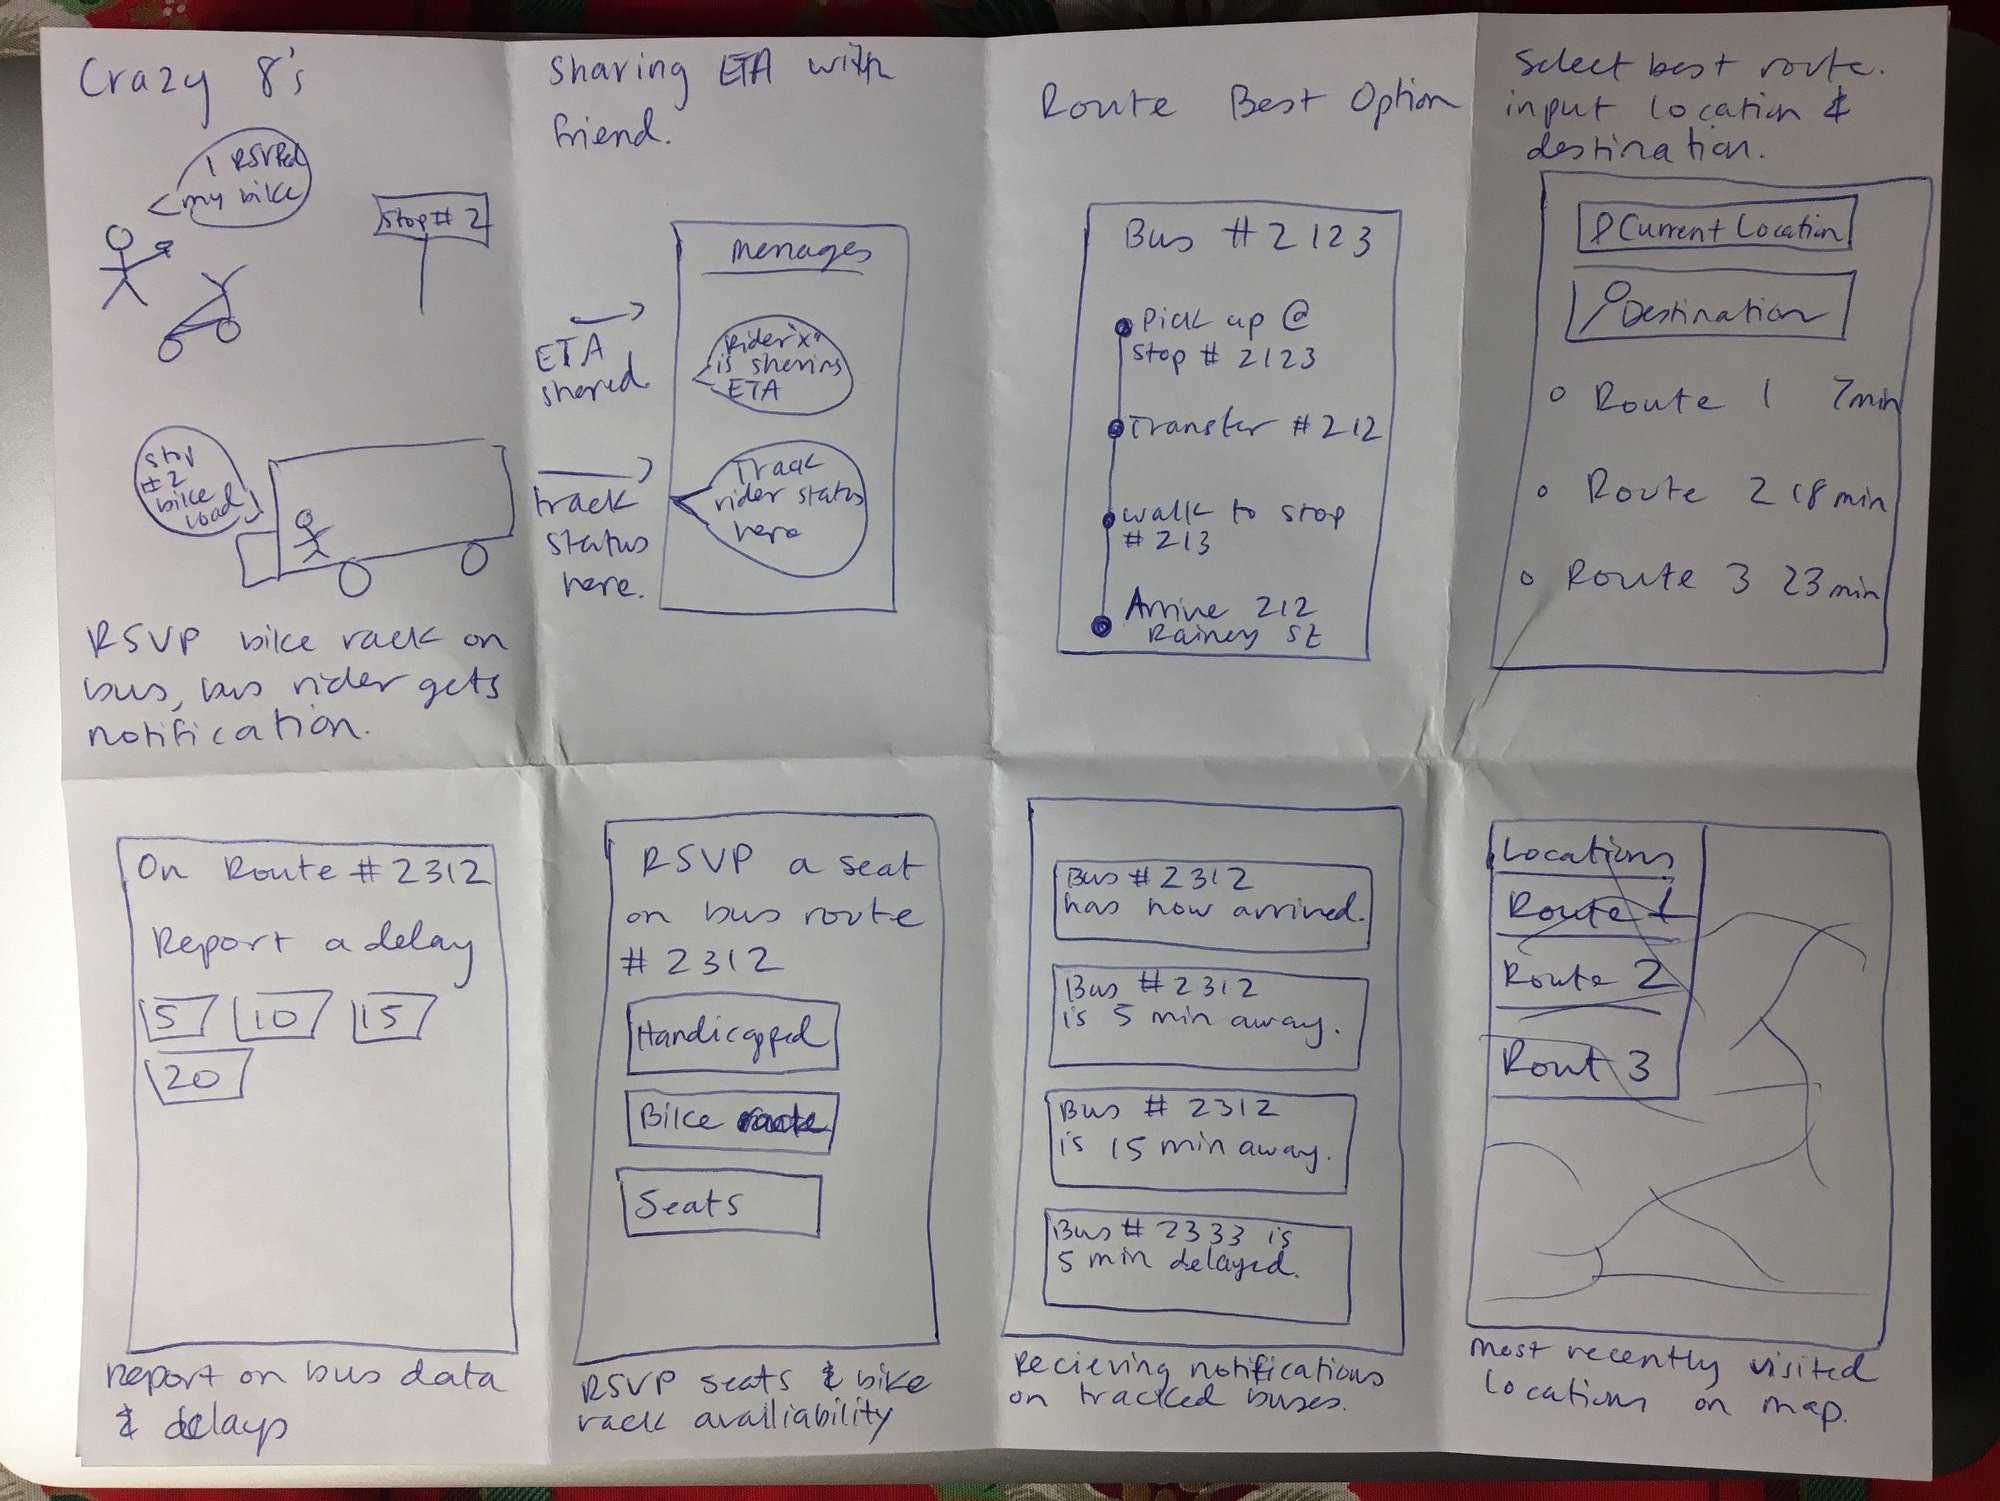 Crazy 8's
I RSVPed
my bike
Stop # 2
Stop
#2
bike
load
RSVP bike rack on
bus, bus rider gets
notification.
Sharing ETA with
friend.
messages
ETA
shared.
Rider "x"
is sharing
ETA
track
status
here.
Track
rider status
here
Route Best Option
Bus # 2123
Pick up @
stop # 2123
Transfer # 212
walk to stop
# 213
Arrive 212
Rainey St
Select best route.
input location &
destination.
Current Location
Destination
Route 1 7min
Route 2 18 min
Route 3 23 min
On Route # 2312
Report a delay
5 10 15
20
report on bus data
& delays
RSVP a seat
on bus route
# 2312
Handicapped
Bike
Seats
RSVP seats & bike
rack availiability
Bus # 2312
has now arrived.
Bus # 2312
is 5 min away.
Bus # 2312
is 15 min away.
Bus # 2333 is
5 min delayed.
Recieving notifications
on tracked buses.
Locations
Route 1
Route 2
Rout 3
most recently visited
locations on map.